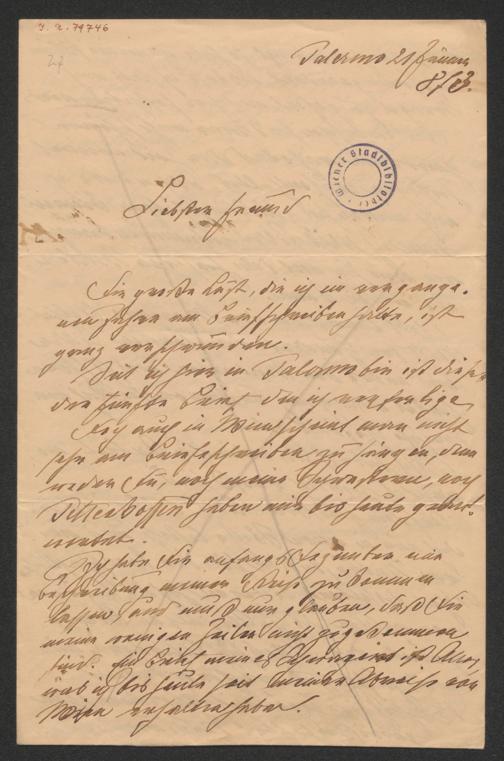 J. N. 79746
27
Palermo 21 Jänner
873.
Wiener Stadtbibliothek
Liebster Freund
Die große Lust, die ich im vergange-
nen Jahre am Briefschreiben hatte, ist
ganz verschwunden.
Seit ich hier in Palermo bin ist dieser
der fünfte Brief den ich verfertige
Doch auch in Wien scheint man nicht
sehr am Briefschreiben zu hängen, denn
weder Du, noch meine Schwestern, noch
haben mir bis heute geant-
wortet.
Ich habe Dir anfangs Dezember eine
Beschreibung meiner Reise zukommen
lassen und muß nun glauben, daß Dir
meine wenigen Zeilen nicht zugekommen
sind. Ein Brief meines ist Alles,
was ich bis heute seit meiner Abreise von
Wien erhalten habe.